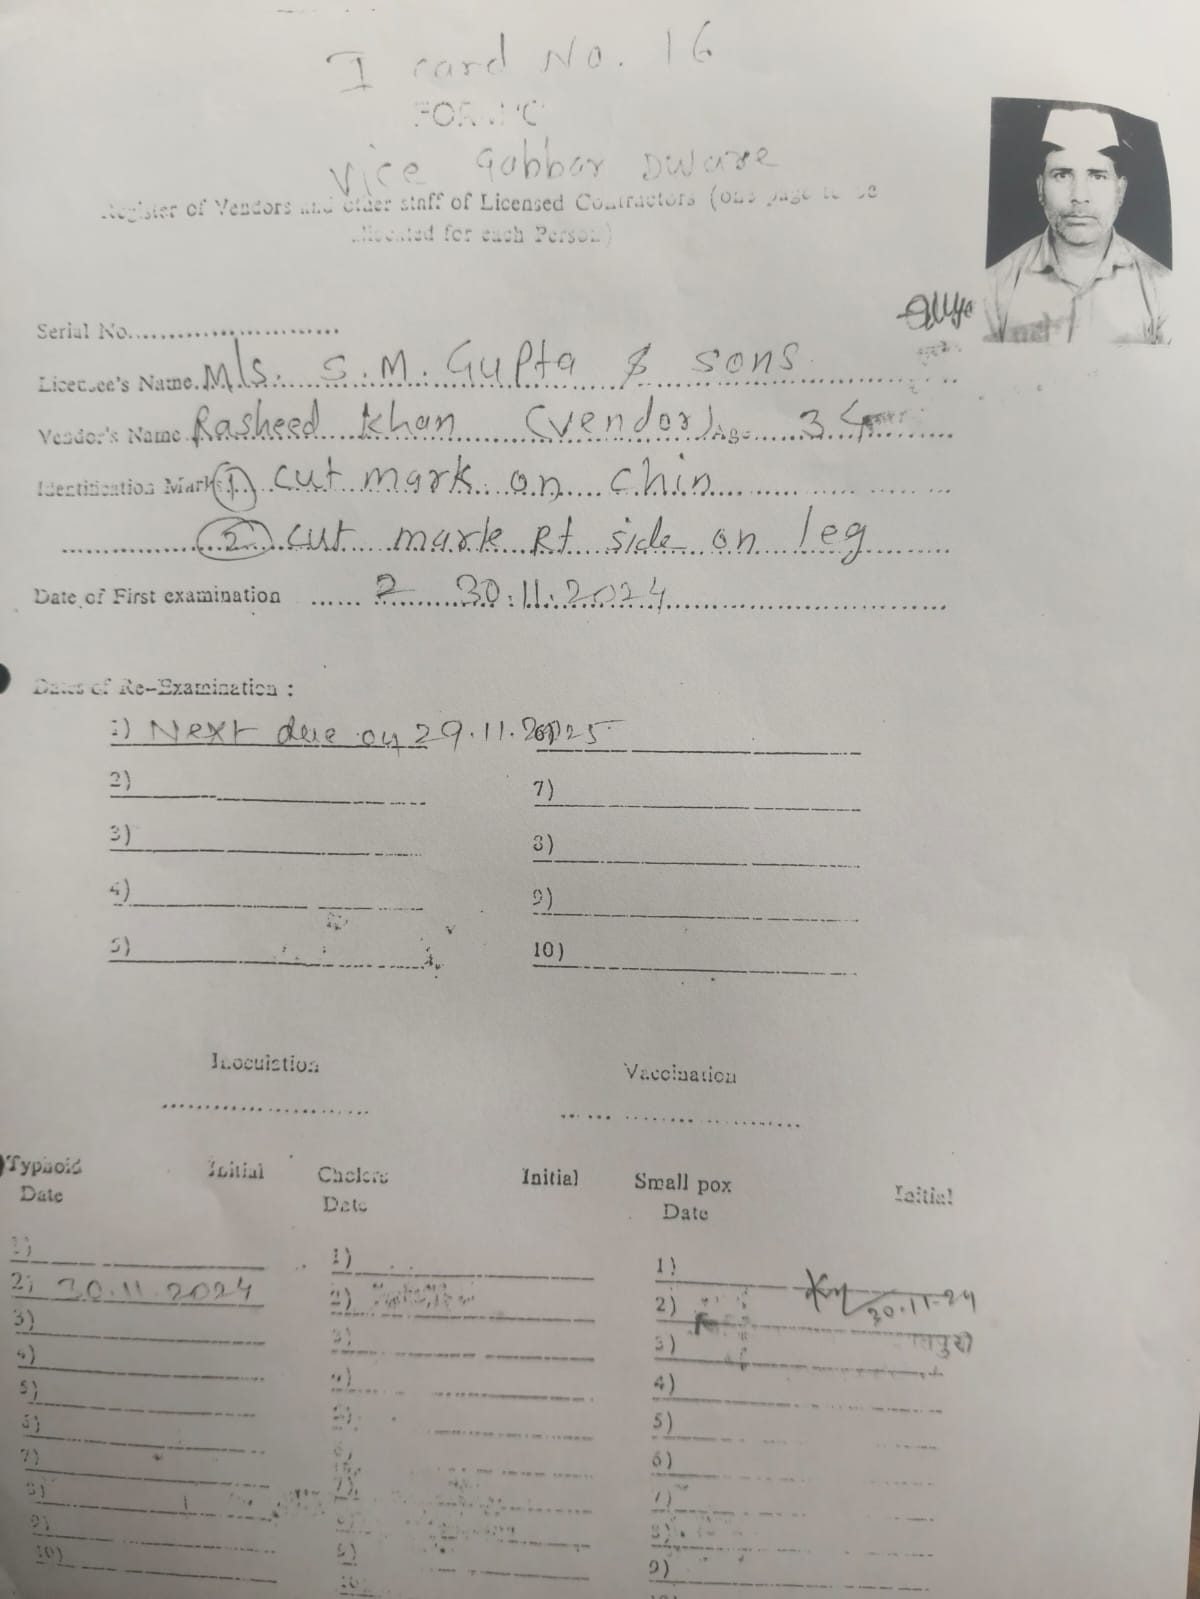 I card No. 16
FORM 'C'
Vice Gabbar Dware
Register of Vendors and other staff of Licensed Contractors (one page to be
allocated for each Person)
Serial No.
Licensee's Name M/s. S.M. Gupta & sons
Vendor's Name Rasheed Khan (vendor) Age 34
Identification Marks (1) cut mark on chin
(2) cut mark Rt side on leg
Date of First examination 30.11.2024
Dates of Re-Examination :
1) Next due on 29.11.2025
2) 7)
3) 8)
4) 9)
5) 10)
Inoculation Vaccination
Typhoid Initial Cholera Initial Small pox Initial
Date Date Date
1) 1) 1)
2) 30.11.2024 2) 2) 30.11.24
3) 3) 3)
4) 4) 4)
5) 5) 5)
6) 6) 6)
7) 7) 7)
8) 8) 8)
9) 9) 9)
10) 10)